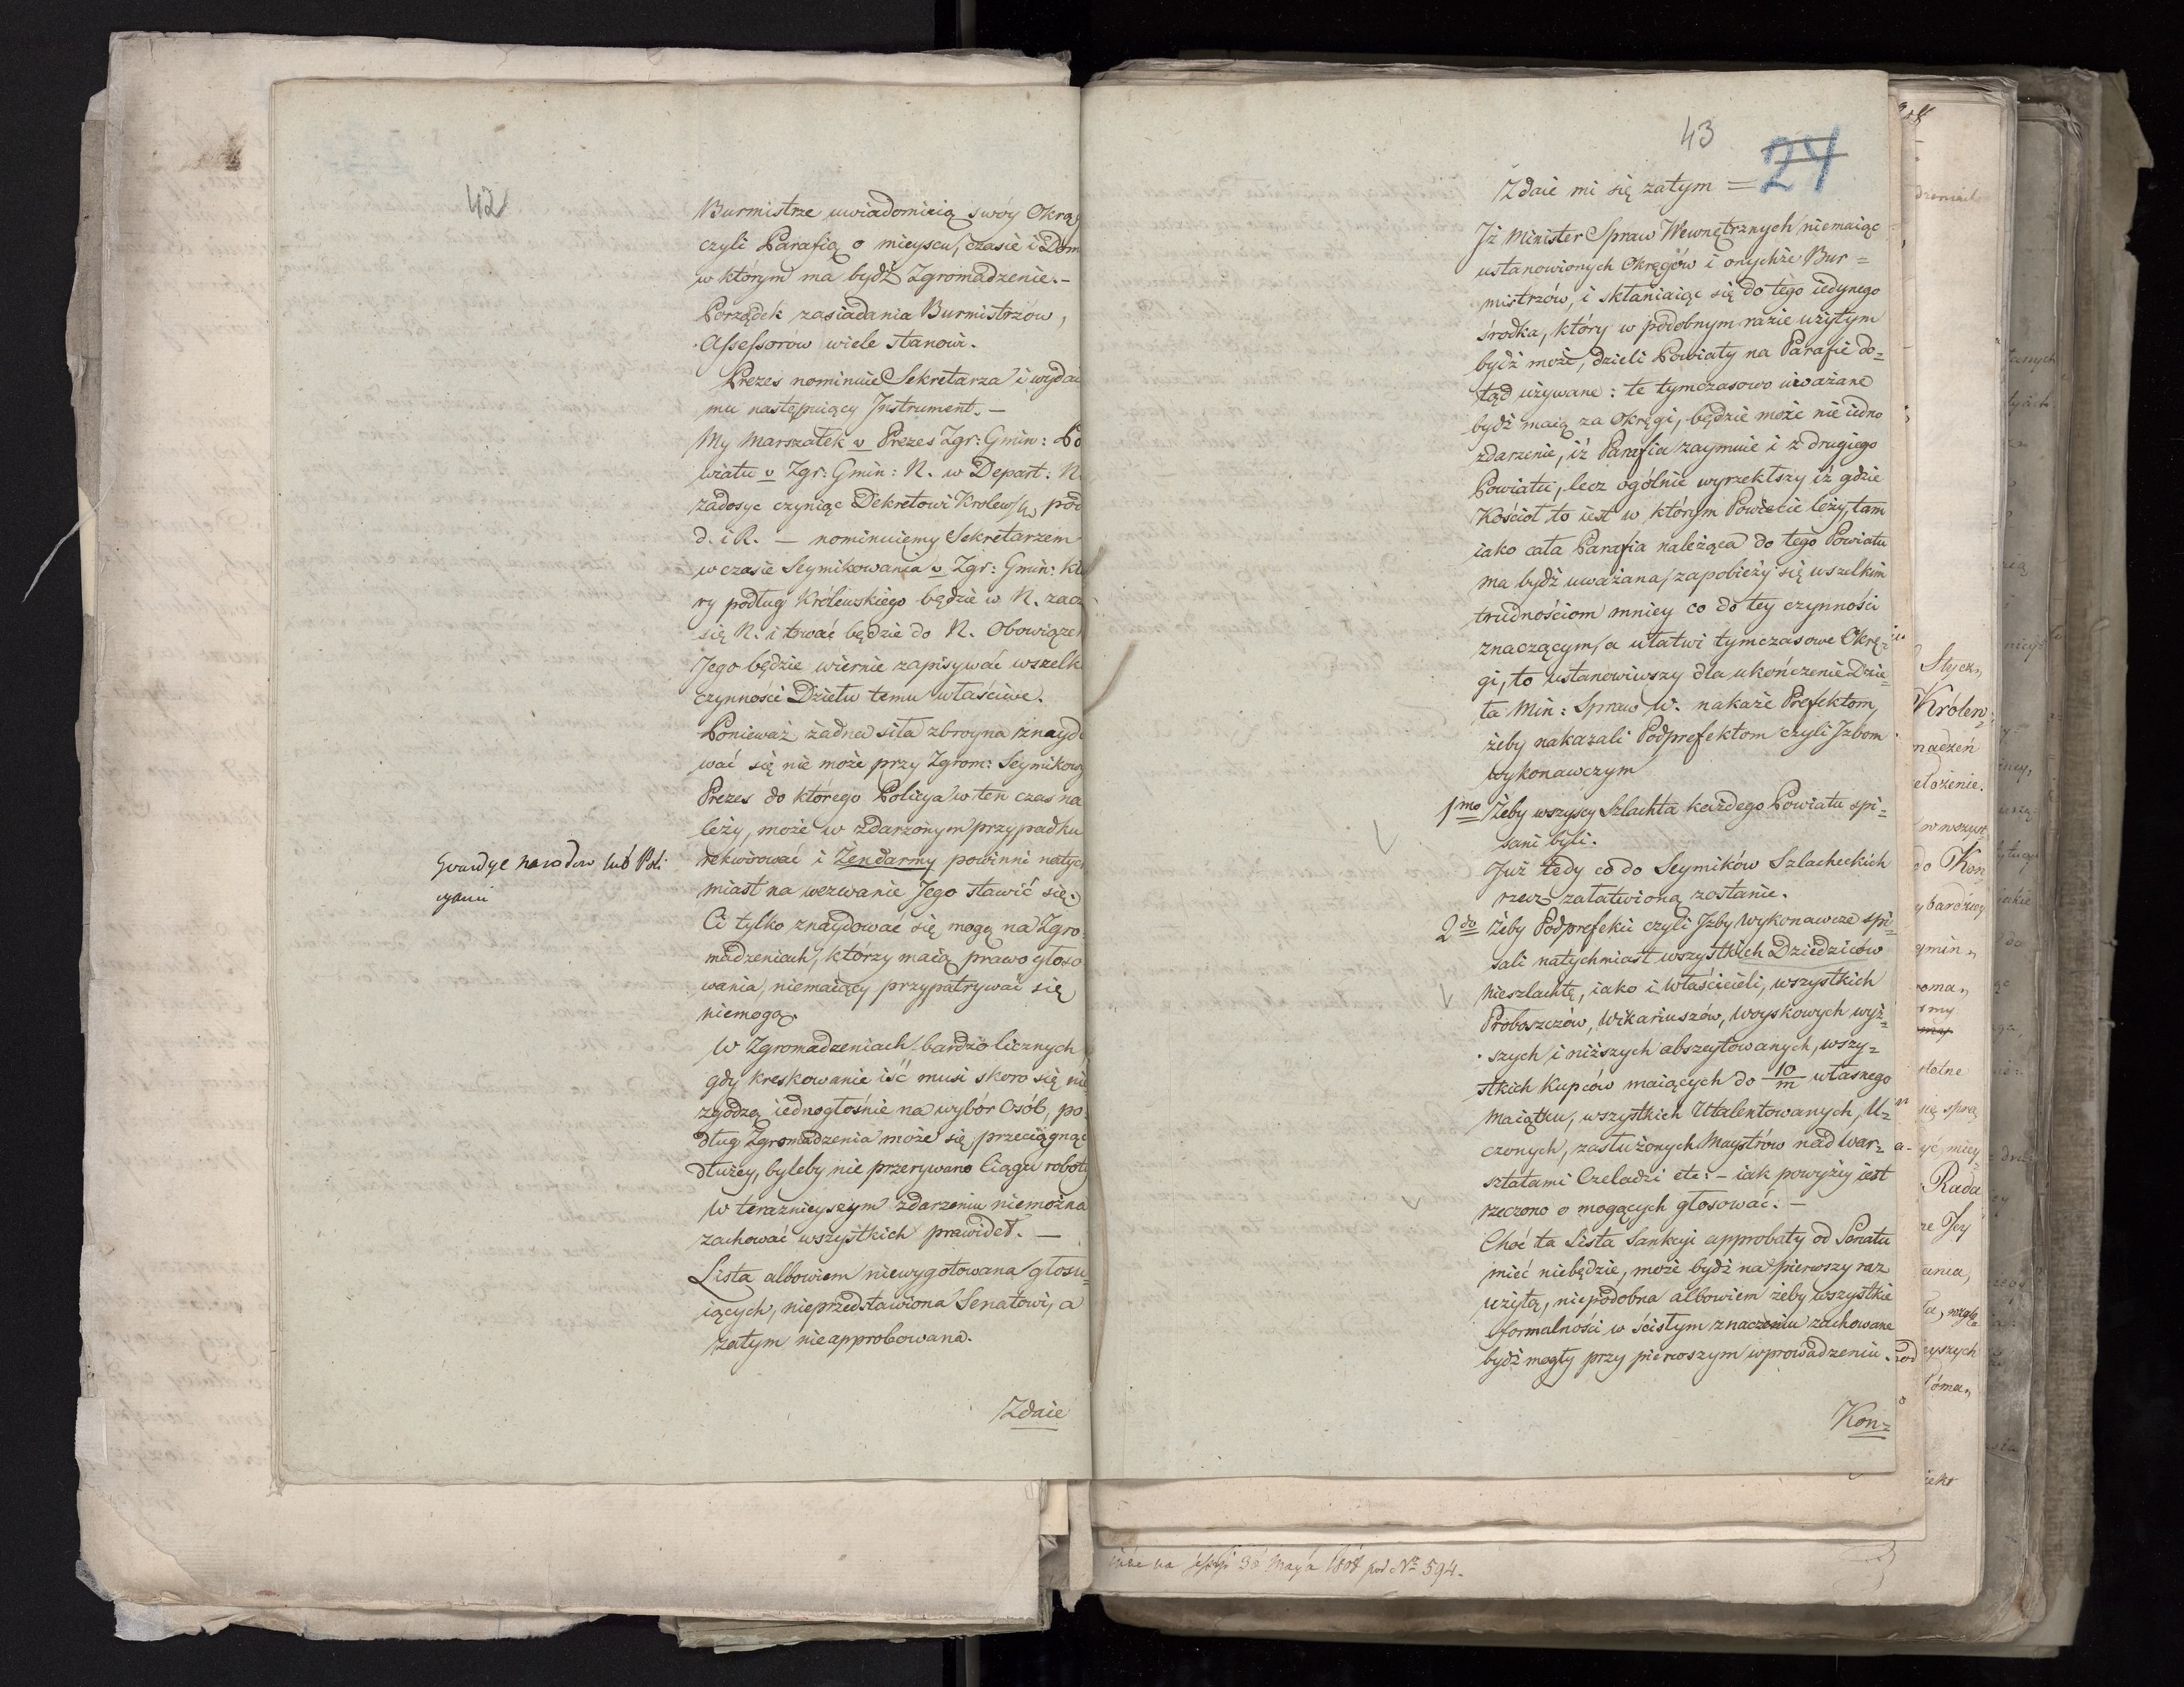 42
Burmistrze uwiadomieią swóy Okrąg
czyli Parafią o mieyscu, czasie i Dom
w którym ma bydź Zgromadzenie. –
Porządek zasiadania Burmistrzow,
Assessorów wiele stanowi.
Prezes nominuie Sekretarza i wydaie
mu następuiący Instrument. –
My Marszałek v Prezes Zgr: Gmin: Po
wiatu v Zgr: Gmin: N. w Depart: N.
zadosyc czyniąc Dekretowi pod
d. i R. – nominuiemy Sekretarzem
w czasie Seymikowania v Zgr: Gmin: któ
ry podług Królewskiego będzie w N. zacz
się N. i trwać będzie do N. Obowiązek
Jego będzie wiernie zapisywać wszelk
czynności Dziełu temu właściwe.
Ponieważ żadna siła zbroyna znaydo
wać się nie może przy Zgrom: Seymikow
Prezes do którego Policya w ten czas na
leży, może w zdarzonym przypadku
rekwirować i Żendarmy powinni natych
Gwardye narodow lub Poli
cyanci
miast na wezwanie Jego stawić się.
Ci tylko znaydować się mogą na Zgro
madzeniach, którzy maią prawo głoso
wania, niemaiący przypatrywać się
niemogą.
W Zgromadzeniach bardzo licznych
gdy kreskowanie iść musi skoro się nie
zgodzą iednogłośnie na wybór Osób, po
dług Zgromadzenia może się przeciągnąć
dłużey, byleby nie przerywano Ciągu roboty
W teraznieyszym zdarzeniu niemożna
zachować wszystkich prawideł. –
Lista albowiem niewygotowana głosu=
iących, nieprzedstawiona Senatowi, a
zatym nieapprobowana.
Zdaie
43
24
Zdaie mi się zatym =
Iż Minister Spraw Wewnętrznych niemaiąc
ustanowionych Okręgów i onychże Bur=
mistrzów, i skłaniaiąc się do tego iedynego
środka, który w podobnym razie użytym
bydź może, dzieli Powiaty na Parafie do=
tąd używane: te tymczasowo uważane
bydź maią za Okręgi, będzie może nie iedno
zdarzenie, iż Parafia zaymuie i z drugiego
Powiatu, lecz ogólnie wyrzekłszy iż gdzie
Kościoł to iest w którym Powiecie leży, tam
iako cała Parafia należąca do tego Powiatu
ma bydź uważana, zapobieży się wszelkim
trudnościom mniey co do tey czynności
znaczącym, a ułatwi tymczasowe Okrę=
gi, to ustanowiwszy dla ukończenie Dzie=
ła Min: Spraw W. nakaże Prefektom,
żeby nakazali Podprefektom czyli Izbom
wykonawczym
1mo Żeby wszyscy Szlachta każdego Powiatu spi=
sani byli.
Już tedy co do Seymików Szlacheckich
rzecz załatwioną zostanie.
2do żeby Podprefekci czyli Izby Wykonawcze spi=
sali natychmiast wszystkich Dziedziców
nieszlachtę, iako i Właścicieli, wszystkich
Proboszczów, Wikariuszów, Woyskowych wyż=
szych i niższych abszeytowanych, wszy=
stkich Kupców maiących do 10/m własnego
Maiątku, wszystkich Utalentowanych, U=
czonych, zasłużonych Maystrów nad War=
sztatami Czeladzi etc: – iak powyżey iest
rzeczono o mogących głosować. –
Choć ta Lista Sankcyi approbaty od Senatu
mieć niebędzie, może bydź na pierwszy raz
użytą, niepodobna albowiem żeby wszystkie
formalności w ścisłym znaczeniu zachowane
bydź mogły przy pierwszym wprowadzeniu.
Kon=
30 Maya 1808 pod No 594.